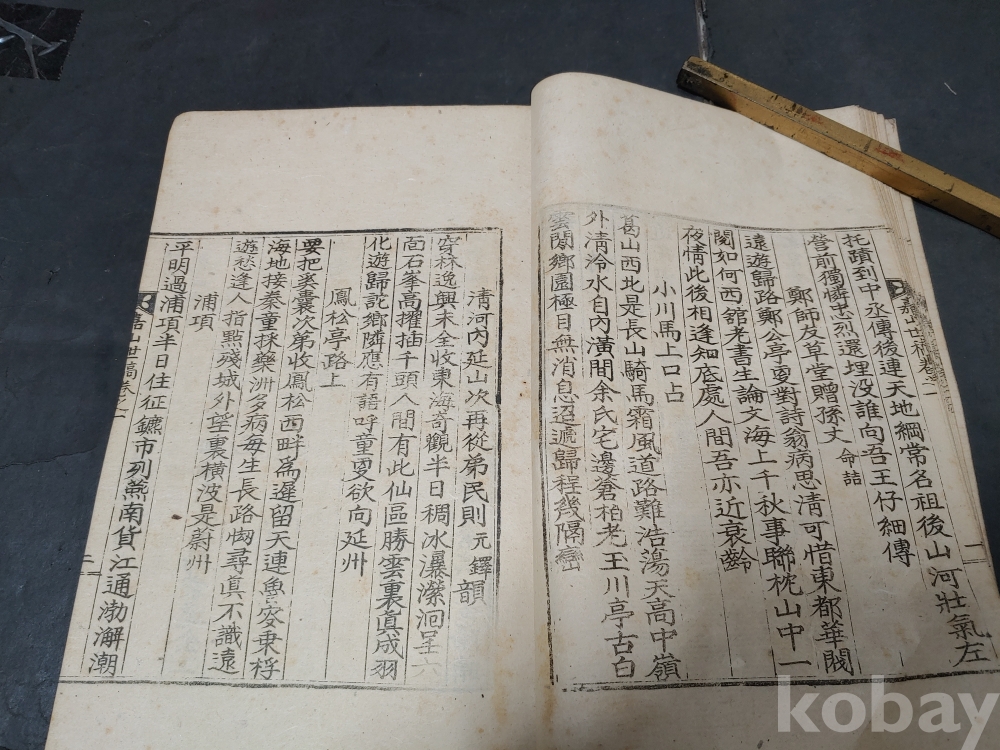 嘉山世稿卷之一
一
托蹟到中丞傳後連天地綱常名祖後山河壯氣左
營前獨憐忠烈還埋没誰向吾王仔細傳
鄭師友草堂贈孫丈命喆
遠遊歸路鄭公亭更對詩翁病思淸可惜東都華閥
閱如何西舘老書生論文海上千秋事聯枕山中一
夜情此後相逢知底處人間吾亦近衰齡
小川馬上口占
葛山西北是長山騎馬霜風道路難浩蕩天高中嶺
外淸泠水自內潢間余氏宅邊蒼柏老王川亭古白
雲閒鄕園極目無消息迢遞歸程幾隔巒
淸河內延山次再從弟民則元鐸韻
穿林逸興未全收東海奇觀半日稠冰瀑瀠洄呈六
面石峯高擢插千頭人間有此仙區勝雲裏眞成羽
化遊歸詫鄕隣應有語呼童更欲向延州
鳳松亭路上
要把奚囊次第收鳳松西畔爲遲留天連魯叟乘桴
海地接秦童採藥洲多病每生長路㥘尋眞不識遠
遊愁逢人指點殘城外望裏橫波是蔚州
浦項
平明過浦項半日住征鑣市列燕南貨江通渤澥潮
嘉山世稿卷之一
二
kobay